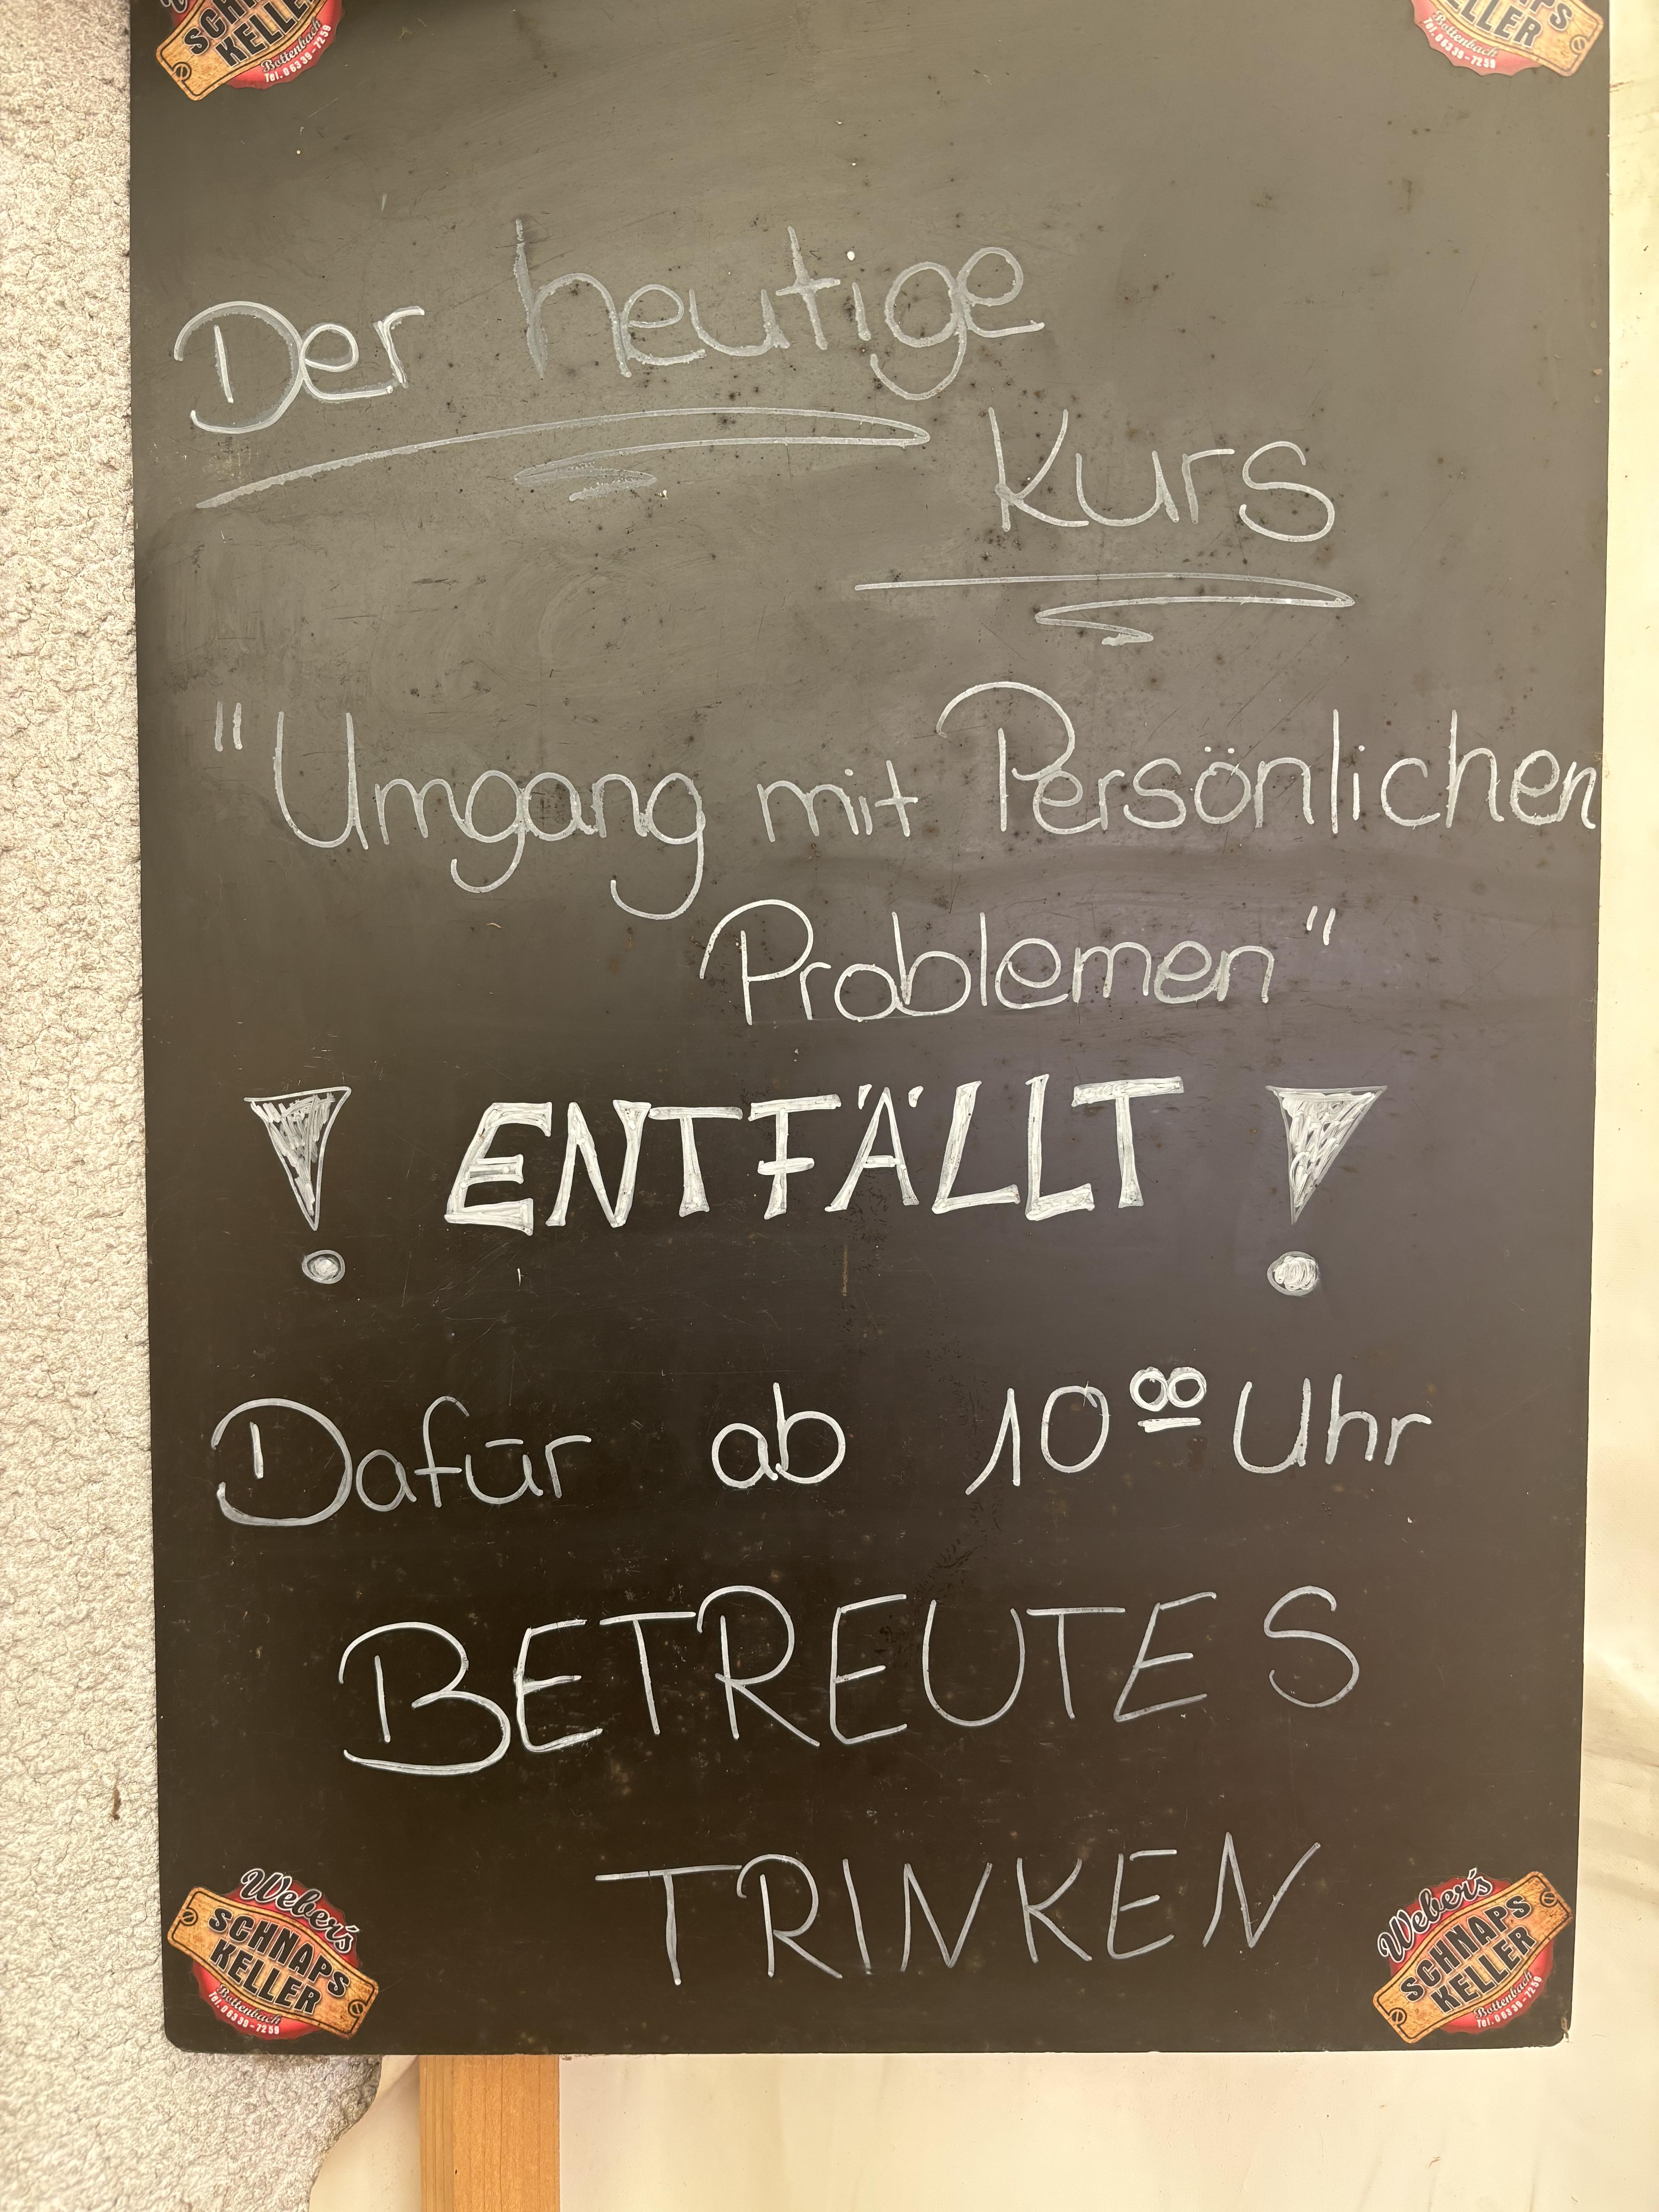 SCHNAPS
KELLER
Bottenbach
Tel. 06339-7259
KELLER
Bottenbach
Tel. 06339-7259
Der heutige
Kurs
"Umgang mit Persönlichen
Problemen"
! ENTFÄLLT !
Dafür ab 10⁰⁰ Uhr
BETREUTES
TRINKEN
Weber's
SCHNAPS
KELLER
Bottenbach
Tel. 06339-7259
Weber's
SCHNAPS
KELLER
Bottenbach
Tel. 06339-7259